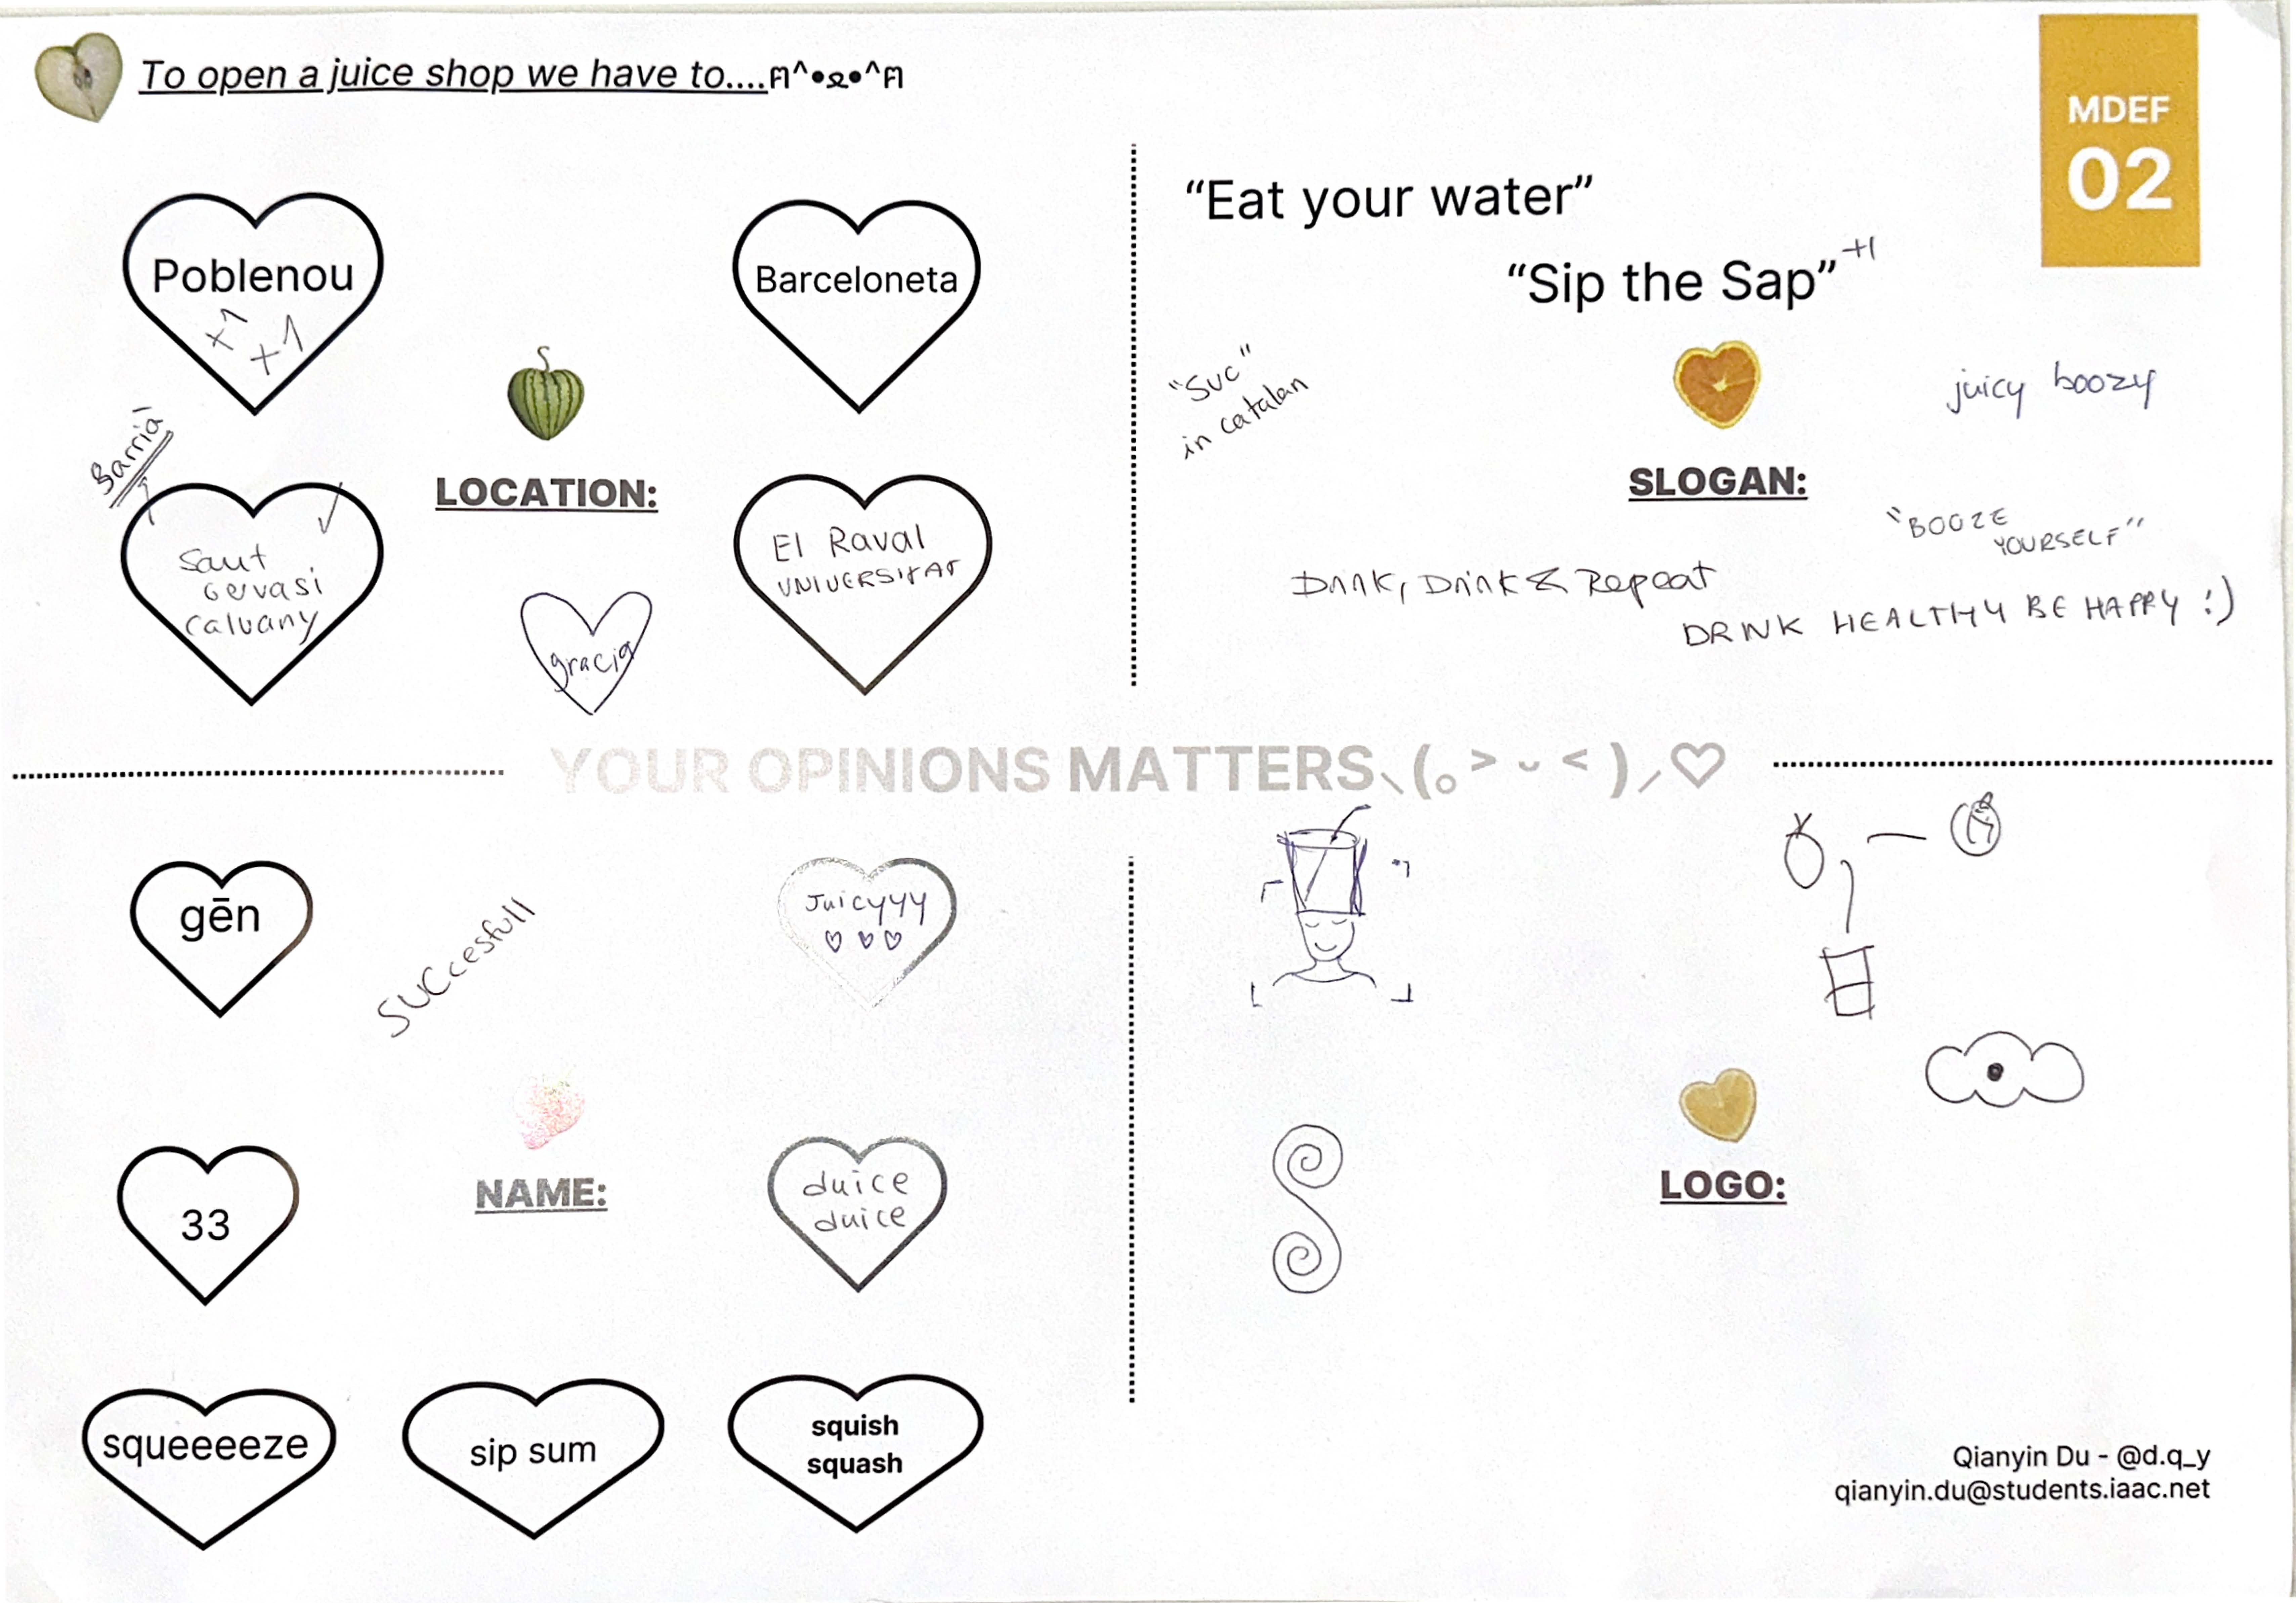 To open a juice shop we have to....ฅ^•ﻌ•^ฅ
MDEF
02
Poblenou
+1
+1
Barceloneta
Sarrià
LOCATION:
Sant
Gervasi
Calvany
El Raval
UNIVERSITAT
gracia
“Eat your water”
“Sip the Sap” +1
"Suc"
in catalan
juicy boozy
SLOGAN:
"BOOZE
YOURSELF"
Drink, Drink & Repeat
DRINK HEALTHY BE HAPPY :)
YOUR OPINIONS MATTERS⸜(｡˃ ᵕ ˂ )⸝♡
gēn
SUCcesfull
Juicyyy
♡ ♡ ♡
33
NAME:
duice
duice
squeeeeze
sip sum
squish
squash
LOGO:
Qianyin Du - @d.q_y
qianyin.du@students.iaac.net